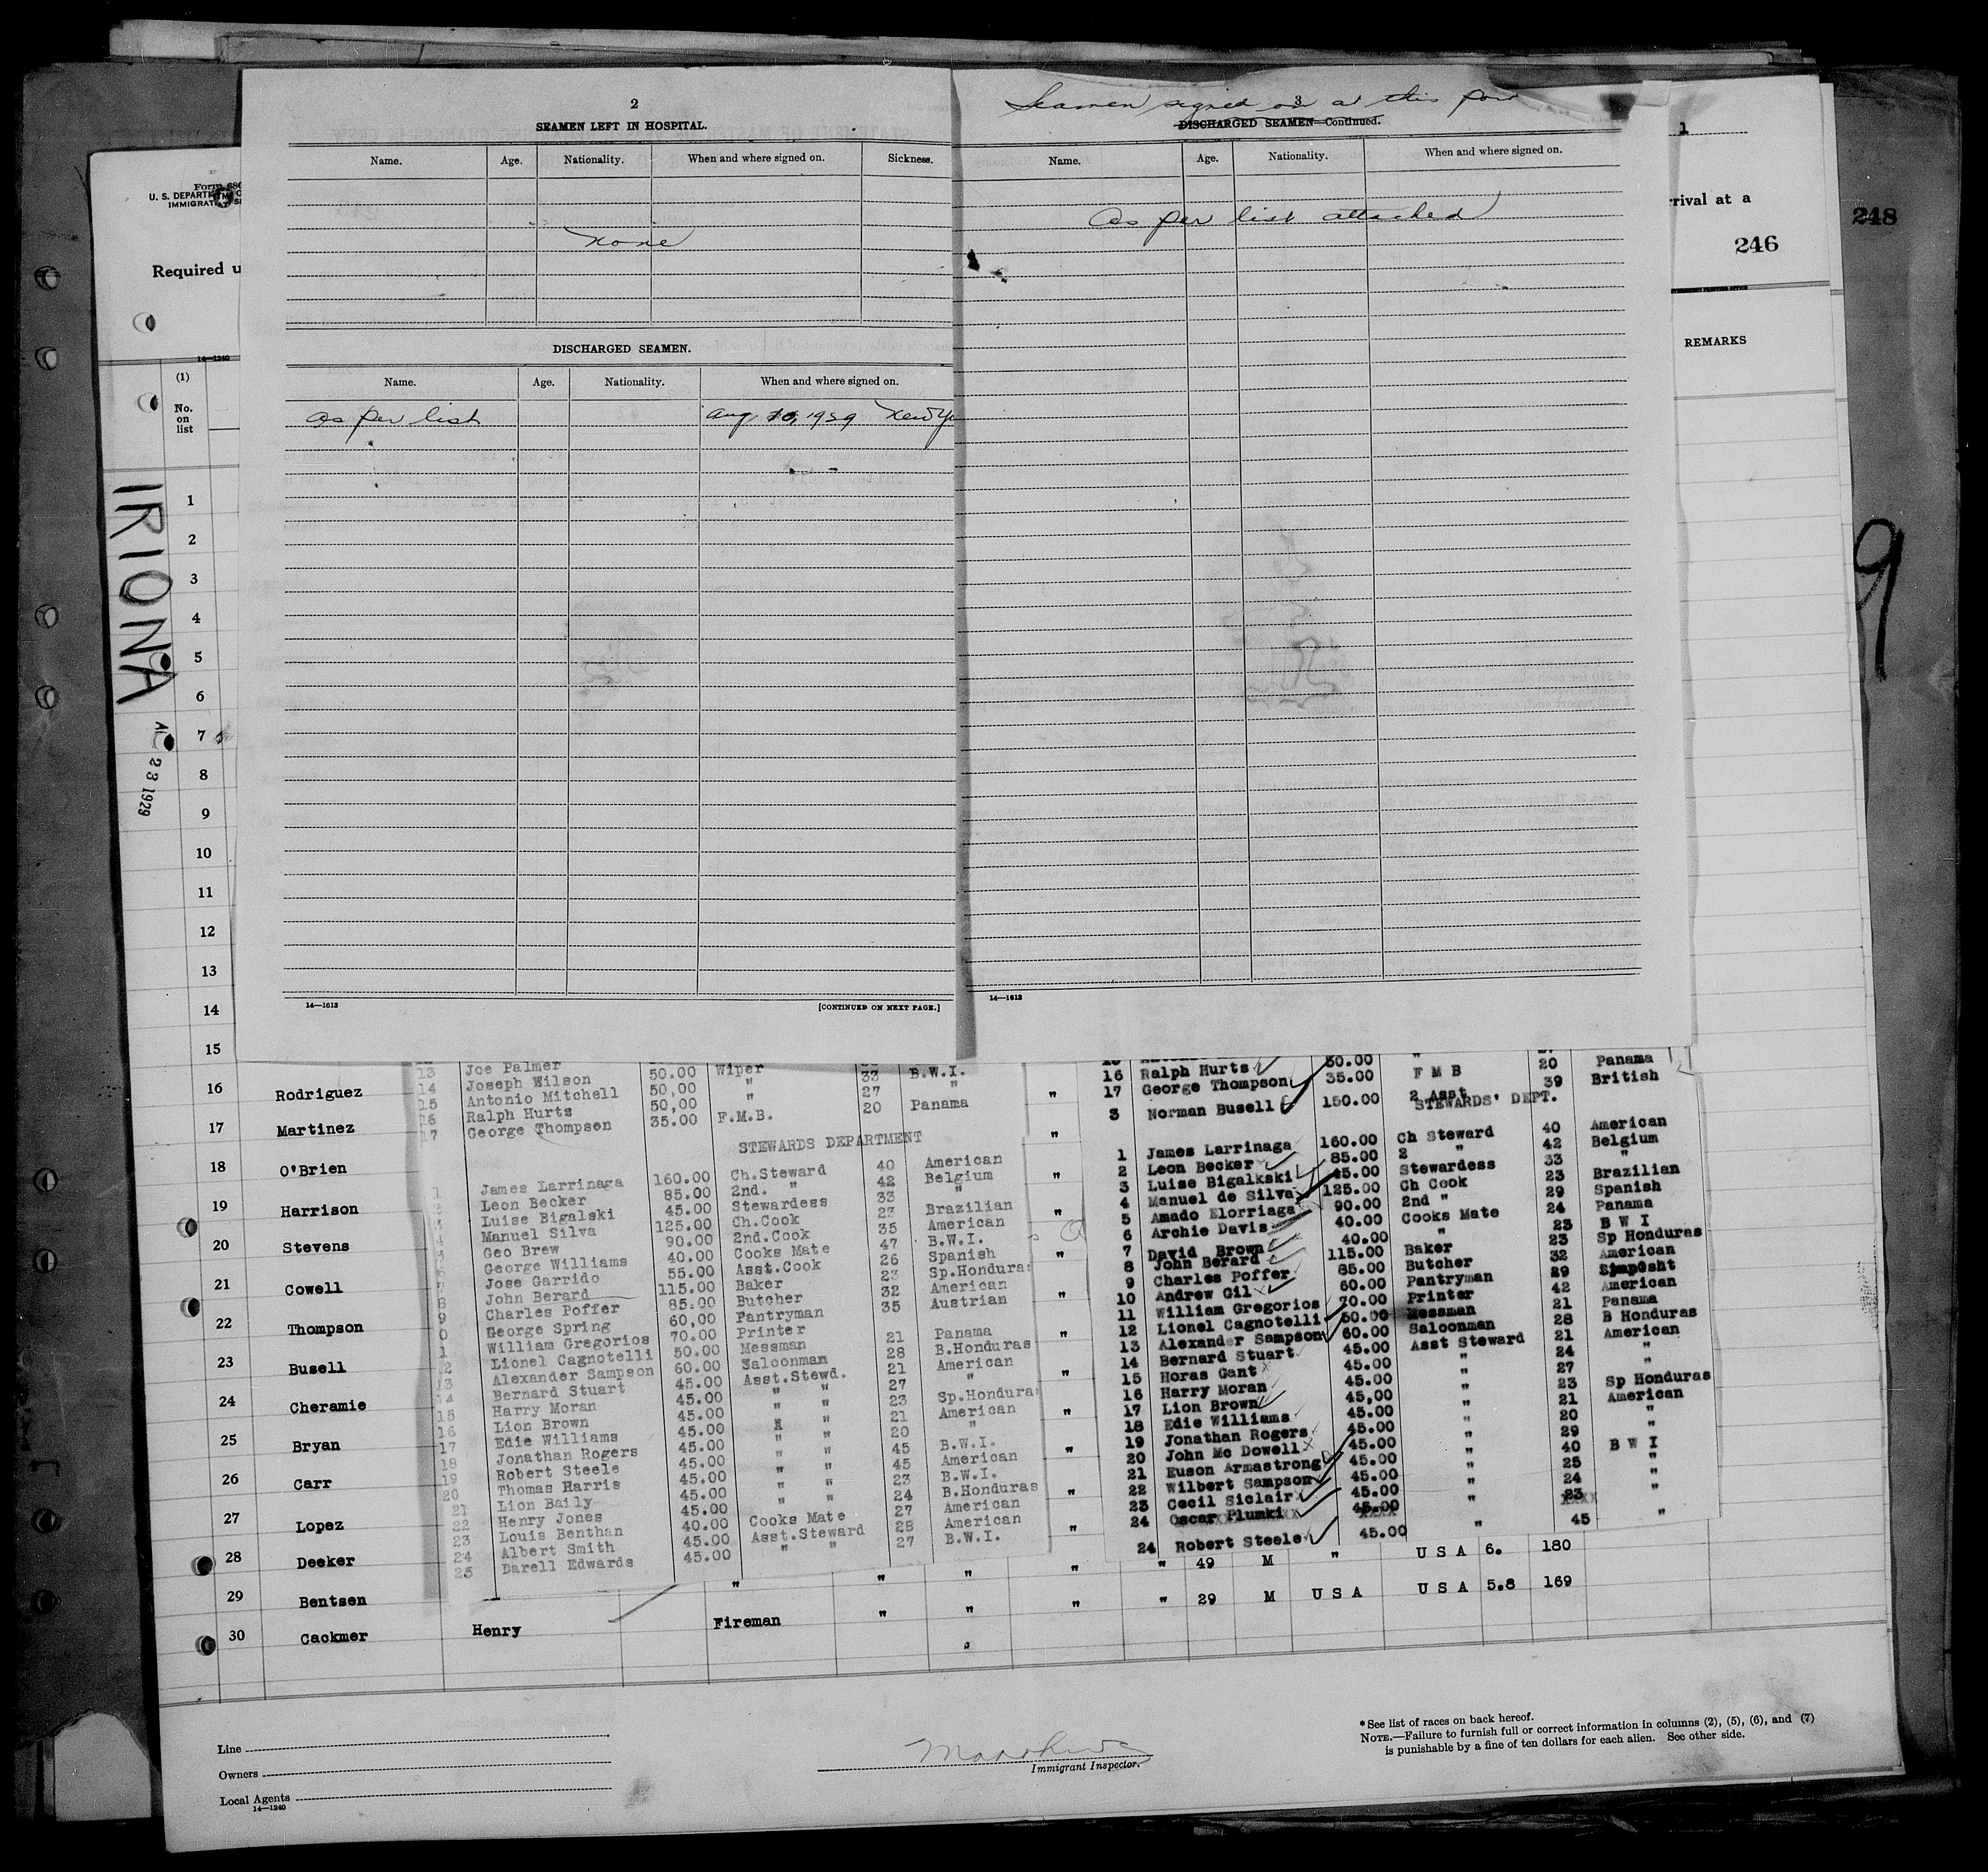 2
SEAMEN LEFT IN HOSPITAL.
Name. Age. Nationality. When and where signed on. Sickness.
None
DISCHARGED SEAMEN.
Name. Age. Nationality. When and where signed on.
as per list Aug 10, 1929 New Yo
14—1613 [CONTINUED ON NEXT PAGE.]
Seamen signed on at this port
3
DISCHARGED SEAMEN—Continued.
Name. Age. Nationality. When and where signed on.
as per list attached
14—1613
Form 680
U. S. DEPARTM
IMMIGRAT
Required u
14—1240
(1)
No.
on
list
IRIONA
23 1929
1
rrival at a
246
248
REMARKS
9
1
2
3
4
5
6
7
8
9
10
11
12
13
14
15
16 Rodriguez
17 Martinez
18 O'Brien
19 Harrison
20 Stevens
21 Cowell
22 Thompson
23 Busell
24 Cheramie
25 Bryan
26 Carr
27 Lopez
28 Deeker " " " " " 49 M " U S A 6. 180
29 Bentsen " " " " " 29 M U S A U S A 5.8 169
30 Cackmer Henry Fireman
13 Joe Palmer 50.00 Wiper 33 B.W.I.
14 Joseph Wilson 50,00 " 27 "
15 Antonio Mitchell 50,00 " 20 Panama
16 Ralph Hurts 35.00 F.M.B.
17 George Thompson
STEWARDS DEPARTMENT
James Larrinaga 160.00 Ch.Steward 40 American
Leon Becker 85.00 2nd. " 42 Belgium
Luise Bigalski 45.00 Stewardess 33 "
Manuel Silva 125.00 Ch.Cook 23 Brazilian
Geo Brew 90.00 2nd.Cook 35 American
George Williams 40.00 Cooks Mate 47 B.W.I.
Jose Garrido 55.00 Asst.Cook 26 Spanish
John Berard 115.00 Baker 23 Sp.Honduras
Charles Poffer 85.00 Butcher 32 American
George Spring 60,00 Pantryman 35 Austrian
William Gregorios 70.00 Printer
Lionel Cagnotelli 50.00 Messman 21 Panama
Alexander Sampson 60.00 Saloonman 28 B.Honduras
Bernard Stuart 45.00 Asst.Stewd. 21 American
15 Harry Moran 45.00 " " 27 "
16 Lion Brown 45.00 " " 23 Sp.Honduras
17 Edie Williams 45.00 " " 21 American
18 Jonathan Rogers 45.00 " " 20 "
19 Robert Steele 45.00 " " 45 B.W.I.
20 Thomas Harris 45.00 " " 45 American
21 Lion Baily 45.00 " " 23 B.W.I.
22 Henry Jones 45.00 " " 24 B.Honduras
23 Louis Benthan 40.00 Cooks Mate 27 American
24 Albert Smith 45.00 Asst.Steward 28 American
25 Darell Edwards 45.00 " " 27 B.W.I.
16 Ralph Hurts 50.00 " 20 Panama
17 George Thompson 35.00 F M B 39 British
3 Norman Busell 150.00 2 Asst
STEWARDS' DEPT.
1 James Larrinaga 160.00 Ch Steward 40 American
2 Leon Becker 85.00 2 " 42 Belgium
3 Luise Bigalkski 45.00 Stewardess 33 "
4 Manuel de Silva 125.00 Ch Cook 23 Brazilian
5 Amado Elorriaga 90.00 2nd " 29 Spanish
6 Archie Davis 40.00 Cooks Mate 24 Panama
7 David Brown 40.00 " 23 B W I
8 John Berard 115.00 Baker 23 Sp Honduras
9 Charles Poffer 85.00 Butcher 32 American
10 Andrew Gil 60.00 Pantryman 29
11 William Gregorios 70.00 Printer 42 American
12 Lionel Cagnotelli 50.00 Messman 21 Panama
13 Alexander Sampson 60.00 Saloonman 28 B Honduras
14 Bernard Stuart 45.00 Asst Steward 21 American
15 Horas Gant 45.00 " 24 "
16 Harry Moran 45.00 " 27 "
17 Lion Brown 45,00 " 23 Sp Honduras
18 Edie Williams 45.00 " 21 American
19 Jonathan Rogers 45.00 " 20 "
20 John Mc Dowell 45.00 " 29 "
21 Euson Armastrong 45.00 " 40 B W I
22 Wilbert Sampson 45.00 " 25 "
23 Cecil Siclair 45.00 " 24 "
24 Oscar Plumki 45.00 " 23 "
24 Robert Steele 45.00 " 45 "
Line
Owners
Local Agents
14—1240
Immigrant Inspector.
*See list of races on back hereof.
NOTE.—Failure to furnish full or correct information in columns (2), (5), (6), and (7)
is punishable by a fine of ten dollars for each alien. See other side.